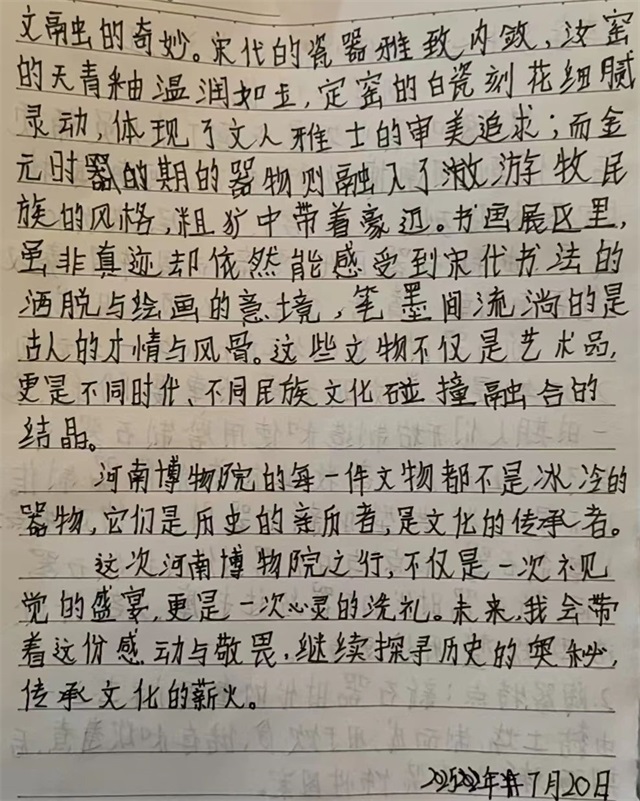 文融虫的奇妙。宋代的瓷器雅致内敛,汝窑
的天青釉温润如玉,定窑的白瓷刻花细腻
灵动,体现了文人雅士的审美追求;而金
元时期的器物则融入了游牧民
族的风格,粗犷中带着豪迈。书画展区里,
虽非真迹却依然能感受到宋代书法的
洒脱与绘画的意境,笔墨间流淌的是
古人的才情与风骨。这些文物不仅是艺术品,
更是不同时代、不同民族文化碰撞融合的
结晶。
河南博物院的每一件文物都不是冰冷的
器物,它们是历史的亲历者,是文化的传承者。
这次河南博物院之行,不仅是一次视
觉的盛宴,更是一次心灵的洗礼。未来,我会带
着这份感动与敬畏,继续探寻历史的奥秘,
传承文化的薪火。
7月20日